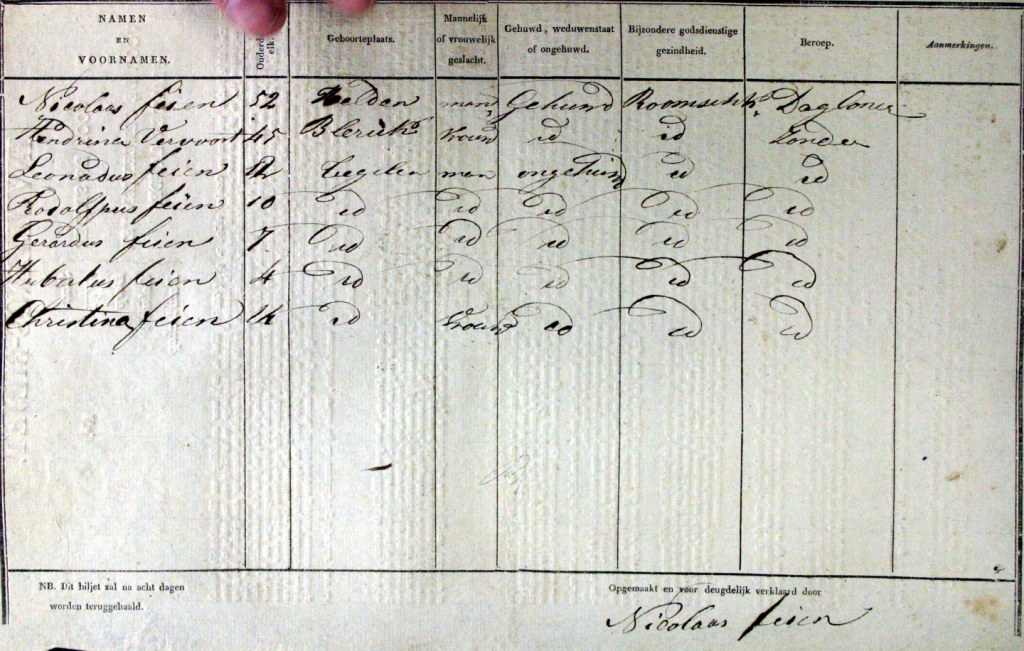 NAMEN EN VOORNAMEN. Ouderdo elk Geboorteplaats. Mannelijk of vrouwelijk geslacht. Gehuwd, weduwenstaat of ongehuwd. Bijzondere godsdienstige gezindheid. Beroep. Aanmerkingen.
Nicolaas feien 52 Helden man Gehuwd Roomsch k. Dagloner
Hendrina Vervoort 45 Blerick vrouw id id Zonder
Leonadus feien 12 Tegelen man ongehuwd id id
Rodolfpus feien 10 id id id id id
Gerardus feien 7 id id id id id
Hubertus feien 4 id id id id id
Christina feien 14 id vrouw id id id
NB. Dit biljet zal na acht dagen
worden teruggehaald.
Opgemaakt en voor deugdelijk verklaard door
Nicolaas feien